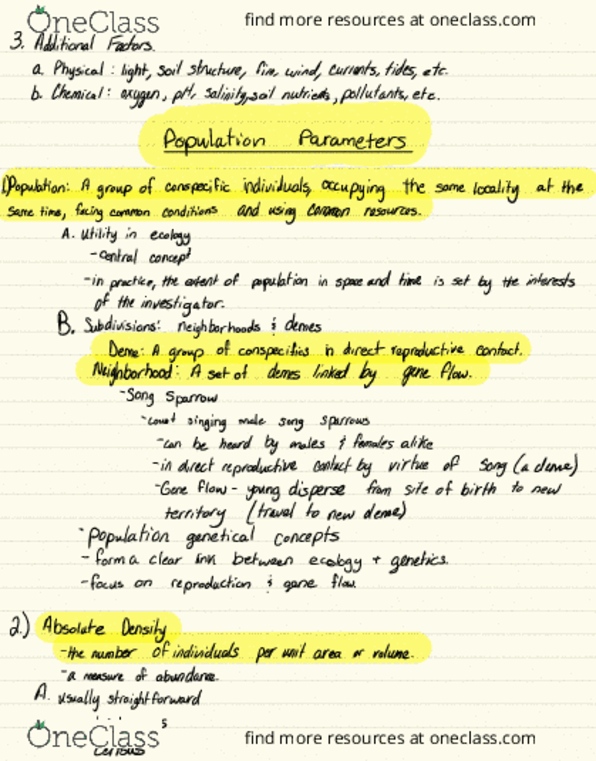 OneClass find more resources at oneclass.com
3. Additional Factors.
a. Physical: light, soil structure, fire, wind, currents, tides, etc.
b. Chemical: oxygen, pH, salinity, soil nutrients, pollutants, etc.
Population Parameters
1.) Population: A group of conspecific individuals, occupying the same locality at the
same time, facing common conditions and using common resources.
A. Utility in ecology
- central concept
- in practice, the extent of population in space and time is set by the interests
of the investigator.
B. Subdivisions: neighborhoods & demes
Deme: A group of conspecifics in direct reproductive contact.
Neighborhood: A set of demes linked by gene flow.
- Song Sparrow
- count singing male song sparrows
- can be heard by males & females alike
- in direct reproductive contact by virtue of song (a deme)
- Gene flow - young disperse from site of birth to new
territory (travel to new deme)
- Population genetical concepts
- form a clear link between ecology + genetics.
- focus on reproduction & gene flow.
2.) Absolute Density
- the number of individuals per unit area or volume.
- a measure of abundance.
A. usually straightforward
OneClass find more resources at oneclass.com